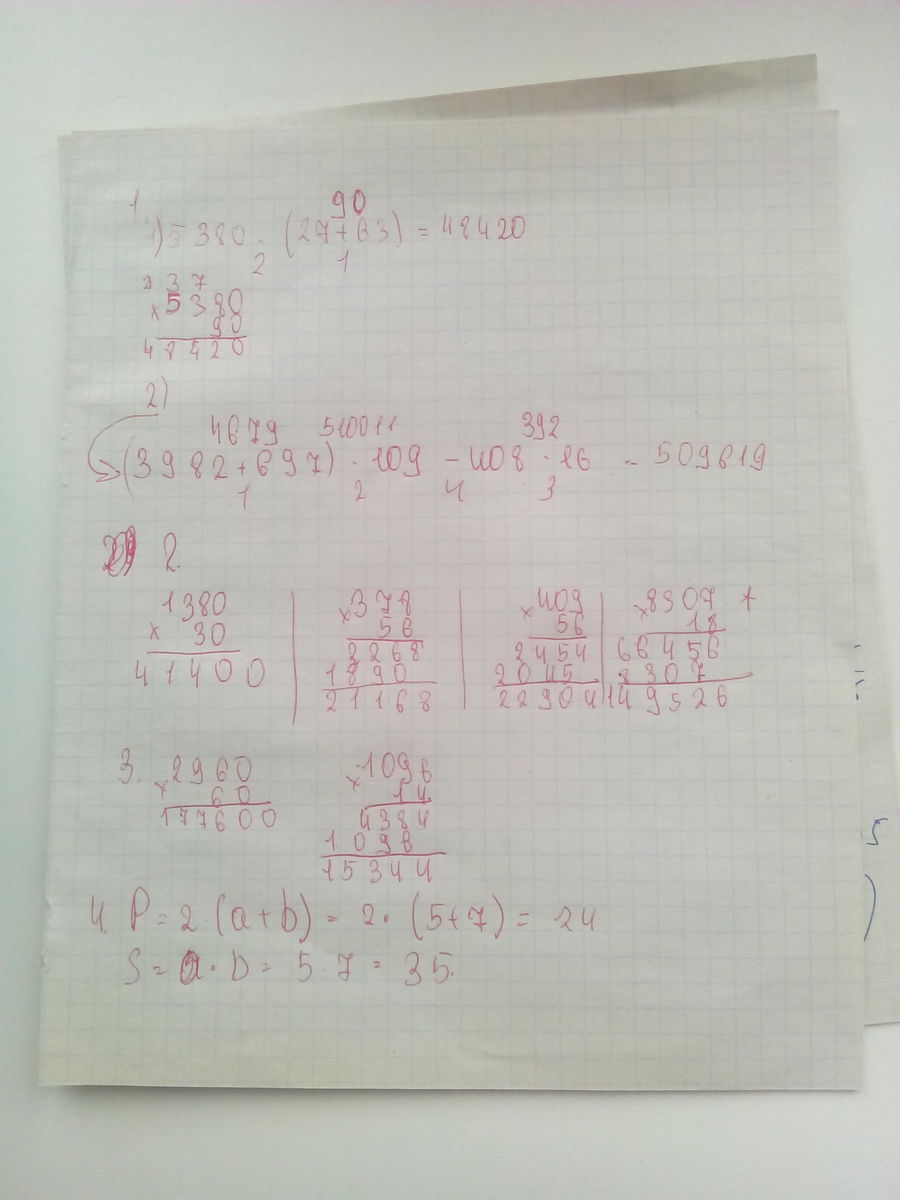 1.
90
1) 5380 · (27+63) = 48420
2 1
2 3 7
× 5380
90
48420
2)
4679 510011 392
(3982+697) · 109 - 408 · 16 = 509619
1 2 4 3
2.
1380
× 30
41400
× 378
56
2268
1890
21168
× 409
56
2454
2045
22904
× 8307 +
18
66456
8307
149526
3. × 2960
60
177600
× 1096
14
4384
1096
15344
4. P = 2·(a+b) = 2·(5+7) = 24
S = a·b = 5·7 = 35.
5
)